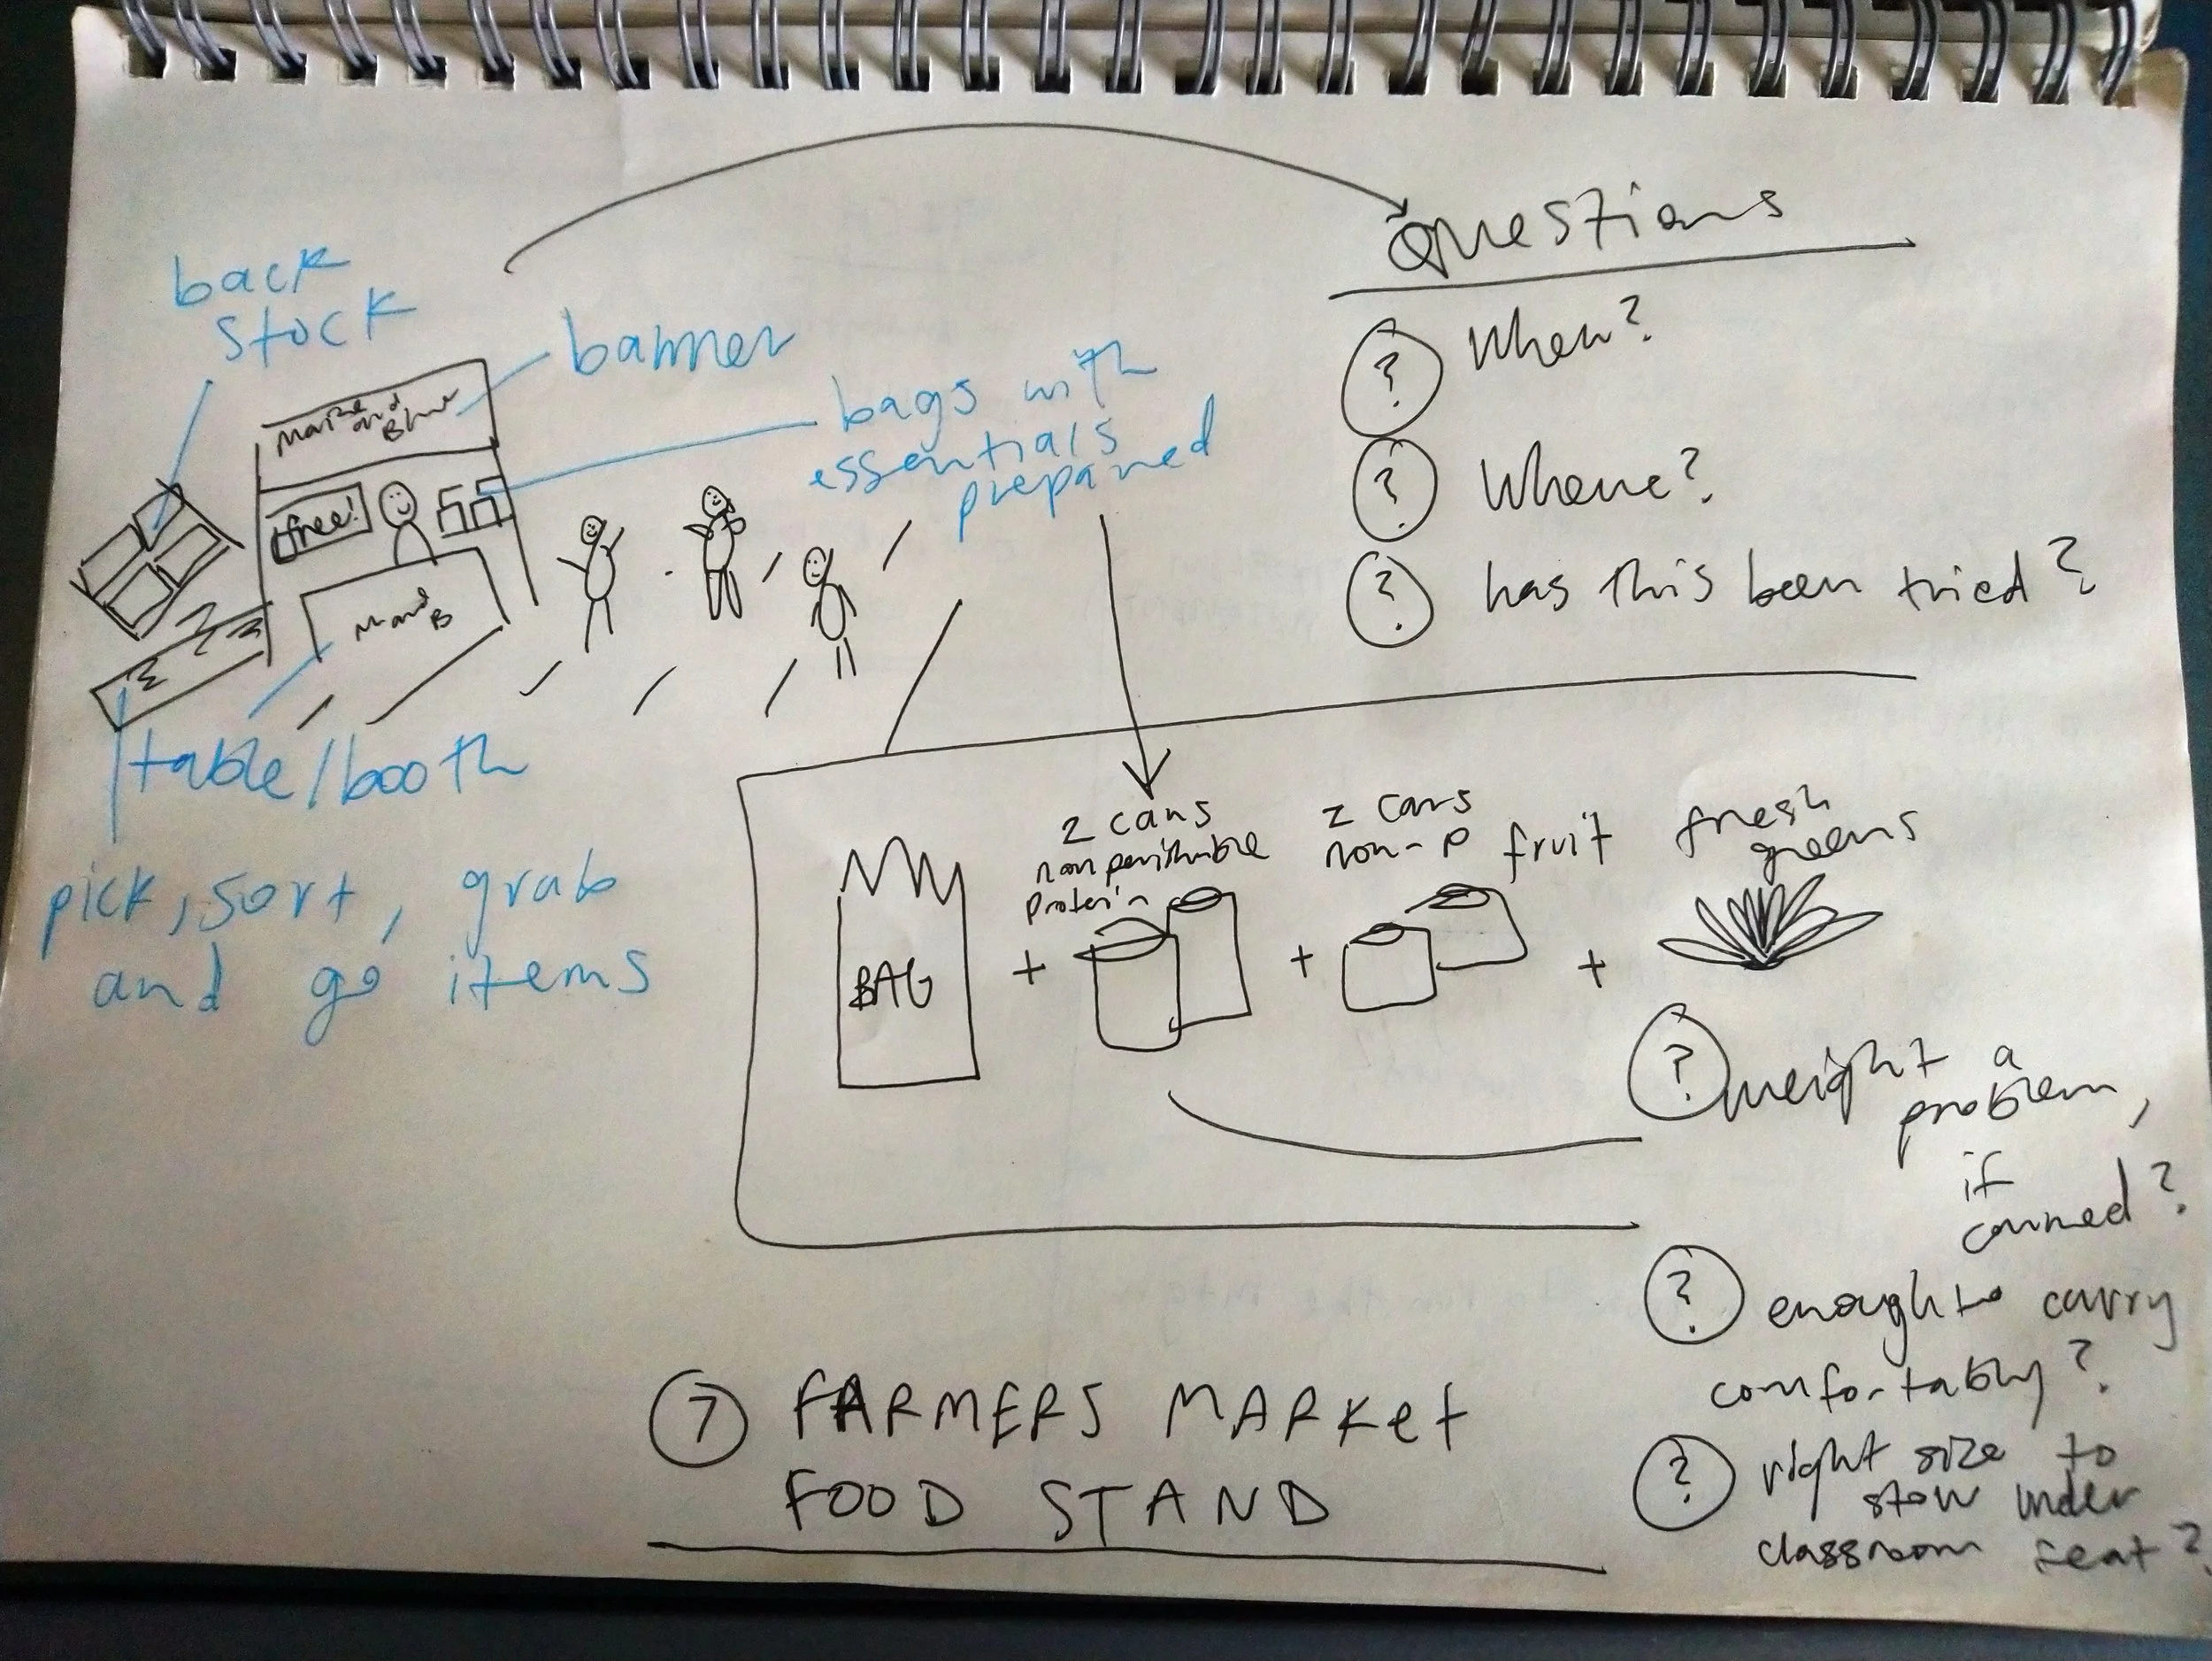 Questions
back
stock
banner
bags with
essentials
prepared
Maize
and
Blue
free!
M and
B
table/booth
pick, sort, grab
and go items
? When?
? Where?
? has this been tried?
BAG
+
2 cans
nonperishable
protein
+
2 cans
non-p fruit
+
fresh
greens
? weight a
problem,
if
canned?
? enough to carry
comfortably?
? right size to
stow under
classroom seat?
7 FARMERS MARKet
FOOD STAND